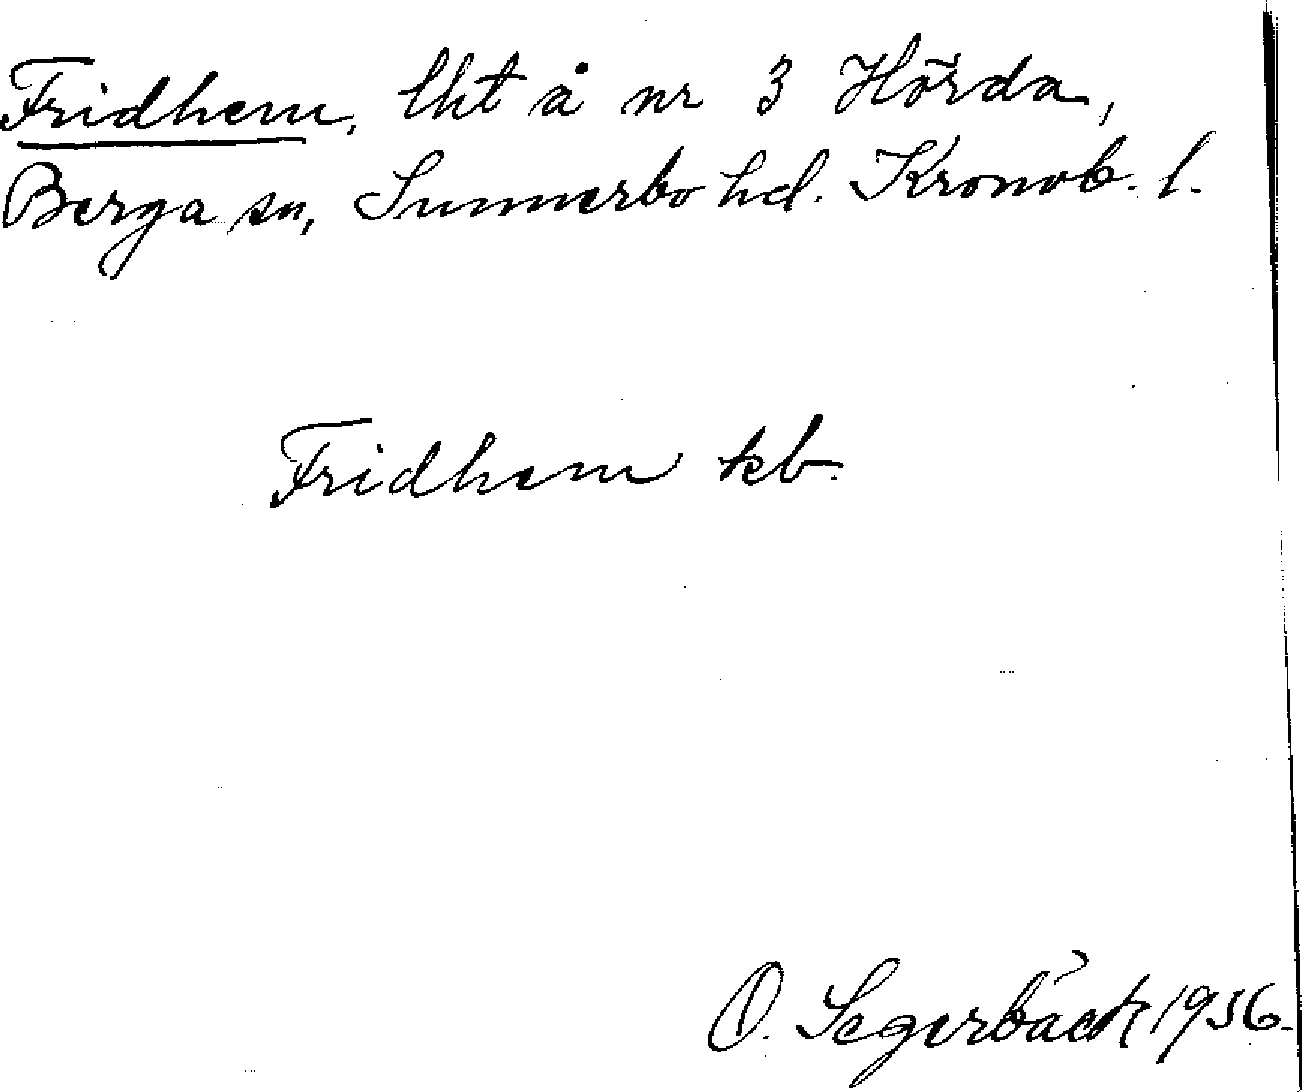 Fridhem, lht å nr 3 Hörda,
Berga sn, Sunnerbo hd. Kronob. l.
Fridhem kb.
O. Segerbäck 1956.